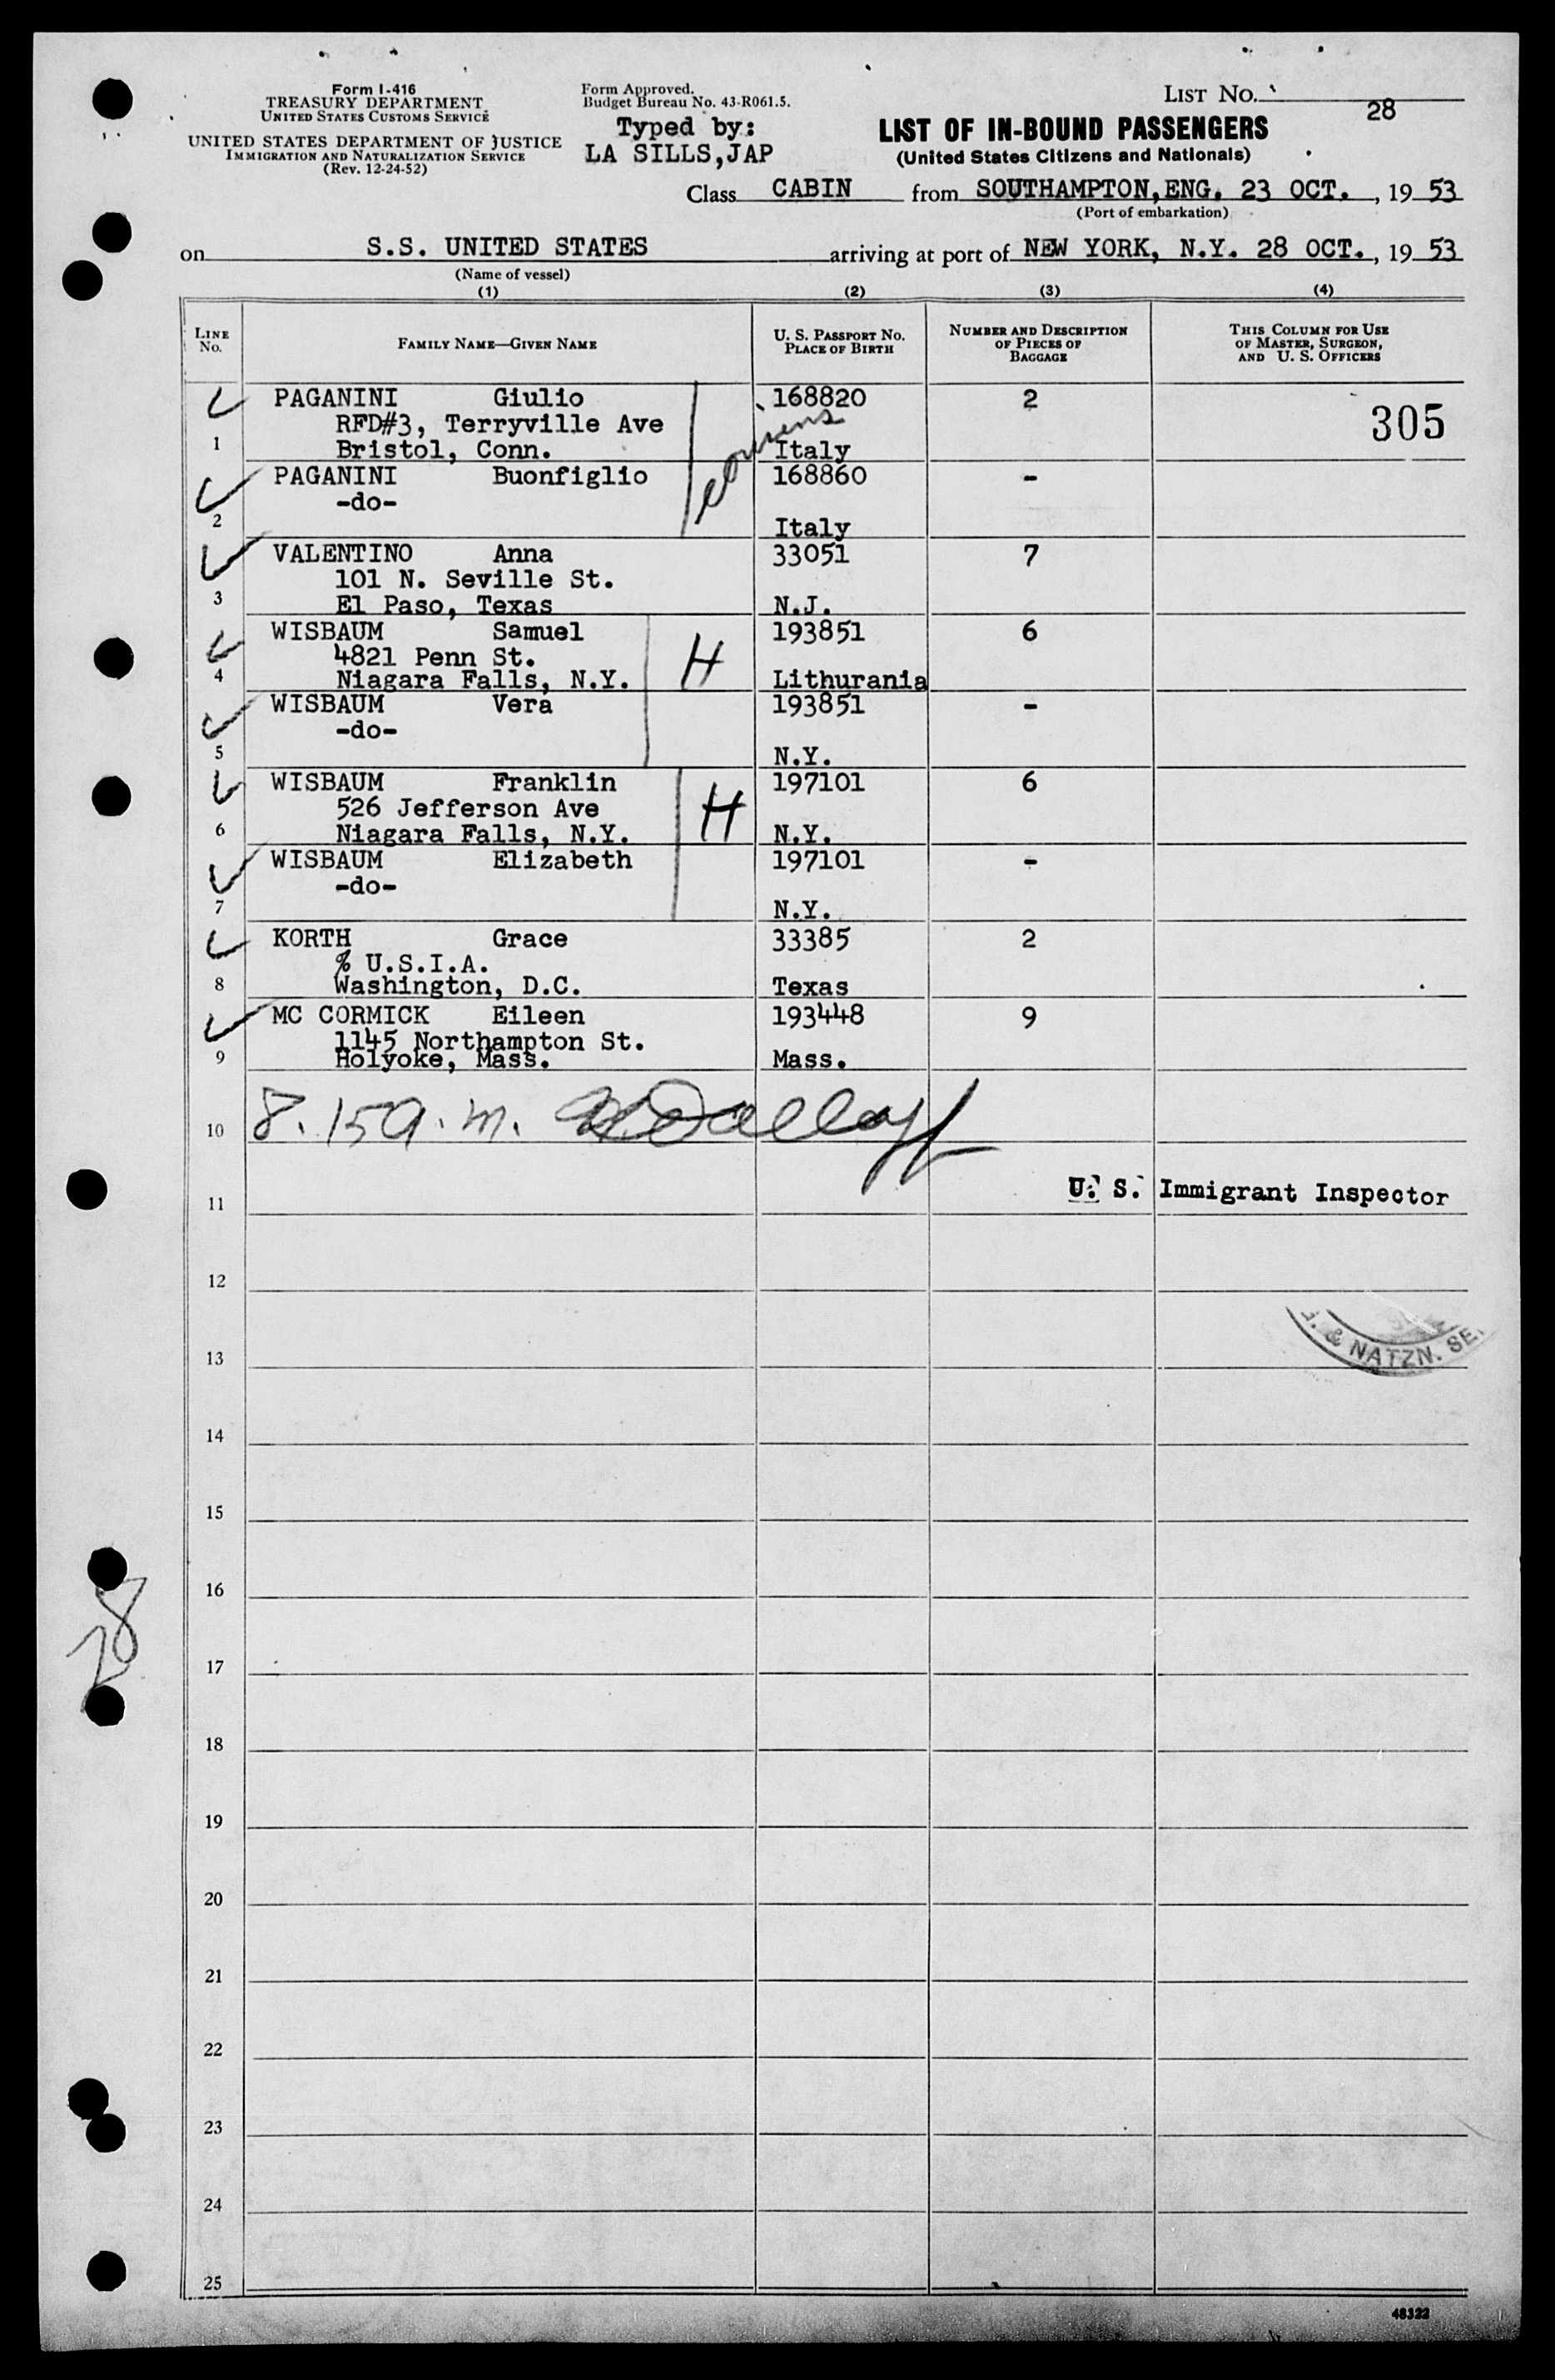 Form I-416
TREASURY DEPARTMENT
UNITED STATES CUSTOMS SERVICE
UNITED STATES DEPARTMENT OF JUSTICE
IMMIGRATION AND NATURALIZATION SERVICE
(Rev. 12-24-52)
Form Approved.
Budget Bureau No. 43-R061.5.
Typed by:
LA SILLS,JAP
LIST NO. 28
LIST OF IN-BOUND PASSENGERS
(United States Citizens and Nationals)
Class CABIN from SOUTHAMPTON,ENG. 23 OCT., 19 53
(Port of embarkation)
on S.S. UNITED STATES arriving at port of NEW YORK, N.Y. 28 OCT., 19 53
(Name of vessel)
(1) (2) (3) (4)
LINE No.
FAMILY NAME—GIVEN NAME
U. S. PASSPORT NO.
PLACE OF BIRTH
NUMBER AND DESCRIPTION
OF PIECES OF
BAGGAGE
THIS COLUMN FOR USE
OF MASTER, SURGEON,
AND U. S. OFFICERS
PAGANINI Giulio 168820 2 305
RFD#3, Terryville Ave
1 Bristol, Conn. Italy
cousins
PAGANINI Buonfiglio 168860 -
-do-
2 Italy
VALENTINO Anna 33051 7
101 N. Seville St.
3 El Paso, Texas N.J.
WISBAUM Samuel 193851 6
4821 Penn St. H
4 Niagara Falls, N.Y. Lithurania
WISBAUM Vera 193851 -
-do-
5 N.Y.
WISBAUM Franklin 197101 6
526 Jefferson Ave H
6 Niagara Falls, N.Y. N.Y.
WISBAUM Elizabeth 197101 -
-do-
7 N.Y.
KORTH Grace 33385 2
% U.S.I.A.
8 Washington, D.C. Texas
MC CORMICK Eileen 193448 9
1145 Northampton St.
9 Holyoke, Mass. Mass.
10 8.15 a.m.
11 U. S. Immigrant Inspector
12
& NATZN. SE
13
14
15
16
28
17
18
19
20
21
22
23
24
25
48322